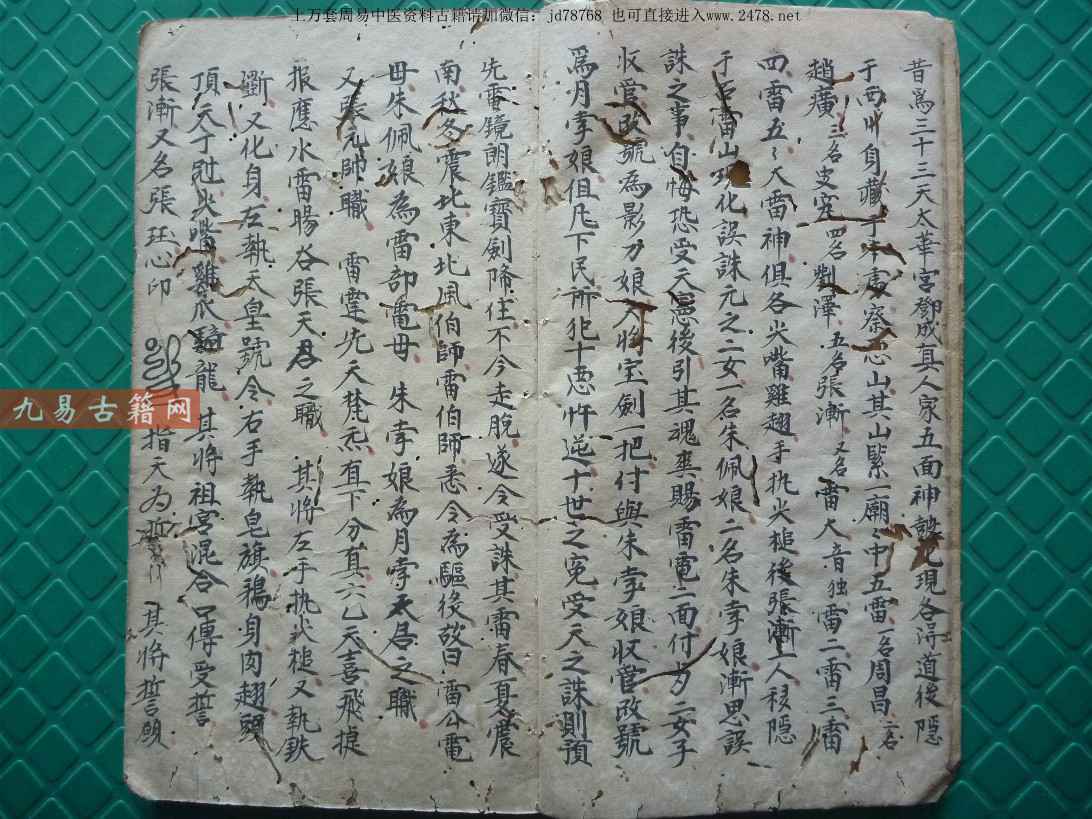 上万套周易中医资料古籍请加微信：jd78768 也可直接进入www.2478.net
昔為三十三天太華宮鄧成真人家五面神談化現各淂道後隱
于西 身藏于 處察 山其山紧一廟々中五雷一名周昌二名
趙廣三名史定四名劉澤 五名張漸 又名雷大音独雷二雷三雷
四雷五々大雷神俱各火嘴雞翅手执火槌後張漸一人移隱
于石雷山巧化誤誅元之二女一名朱佩娘二名朱孛娘漸思誤
誅之事自悔恐受天 後引其魂與賜雷電二面付为二女子
收管改號為影刀娘入将宝劍一把付與朱孛娘收管改號
為月孛娘但凡下民所犯十惡忤逆十世之冤受天之誅則預
先電鏡朗鑑寶劍降住不令走脫遂令受誅其雷春夏震
南秋冬震北東北風伯師雷伯師悉令為驅後 曰雷公電
母朱佩娘為雷部電母 朱孛娘為月孛天君之職
又張元帥職 雷霆先天梵炁直下分真六乙天喜飛捷
报應水雷暘谷張天君之職 其将左手执火槌又執鉄
斷又化身左執天皇號令右手執皂旗鴉身肉翅頭
頂天丁冠火嘴雞爪騎龍 其将祖宮混合 傳受誓
張漸又名張珏心印 指天为誓 其将誓願
九易古籍网